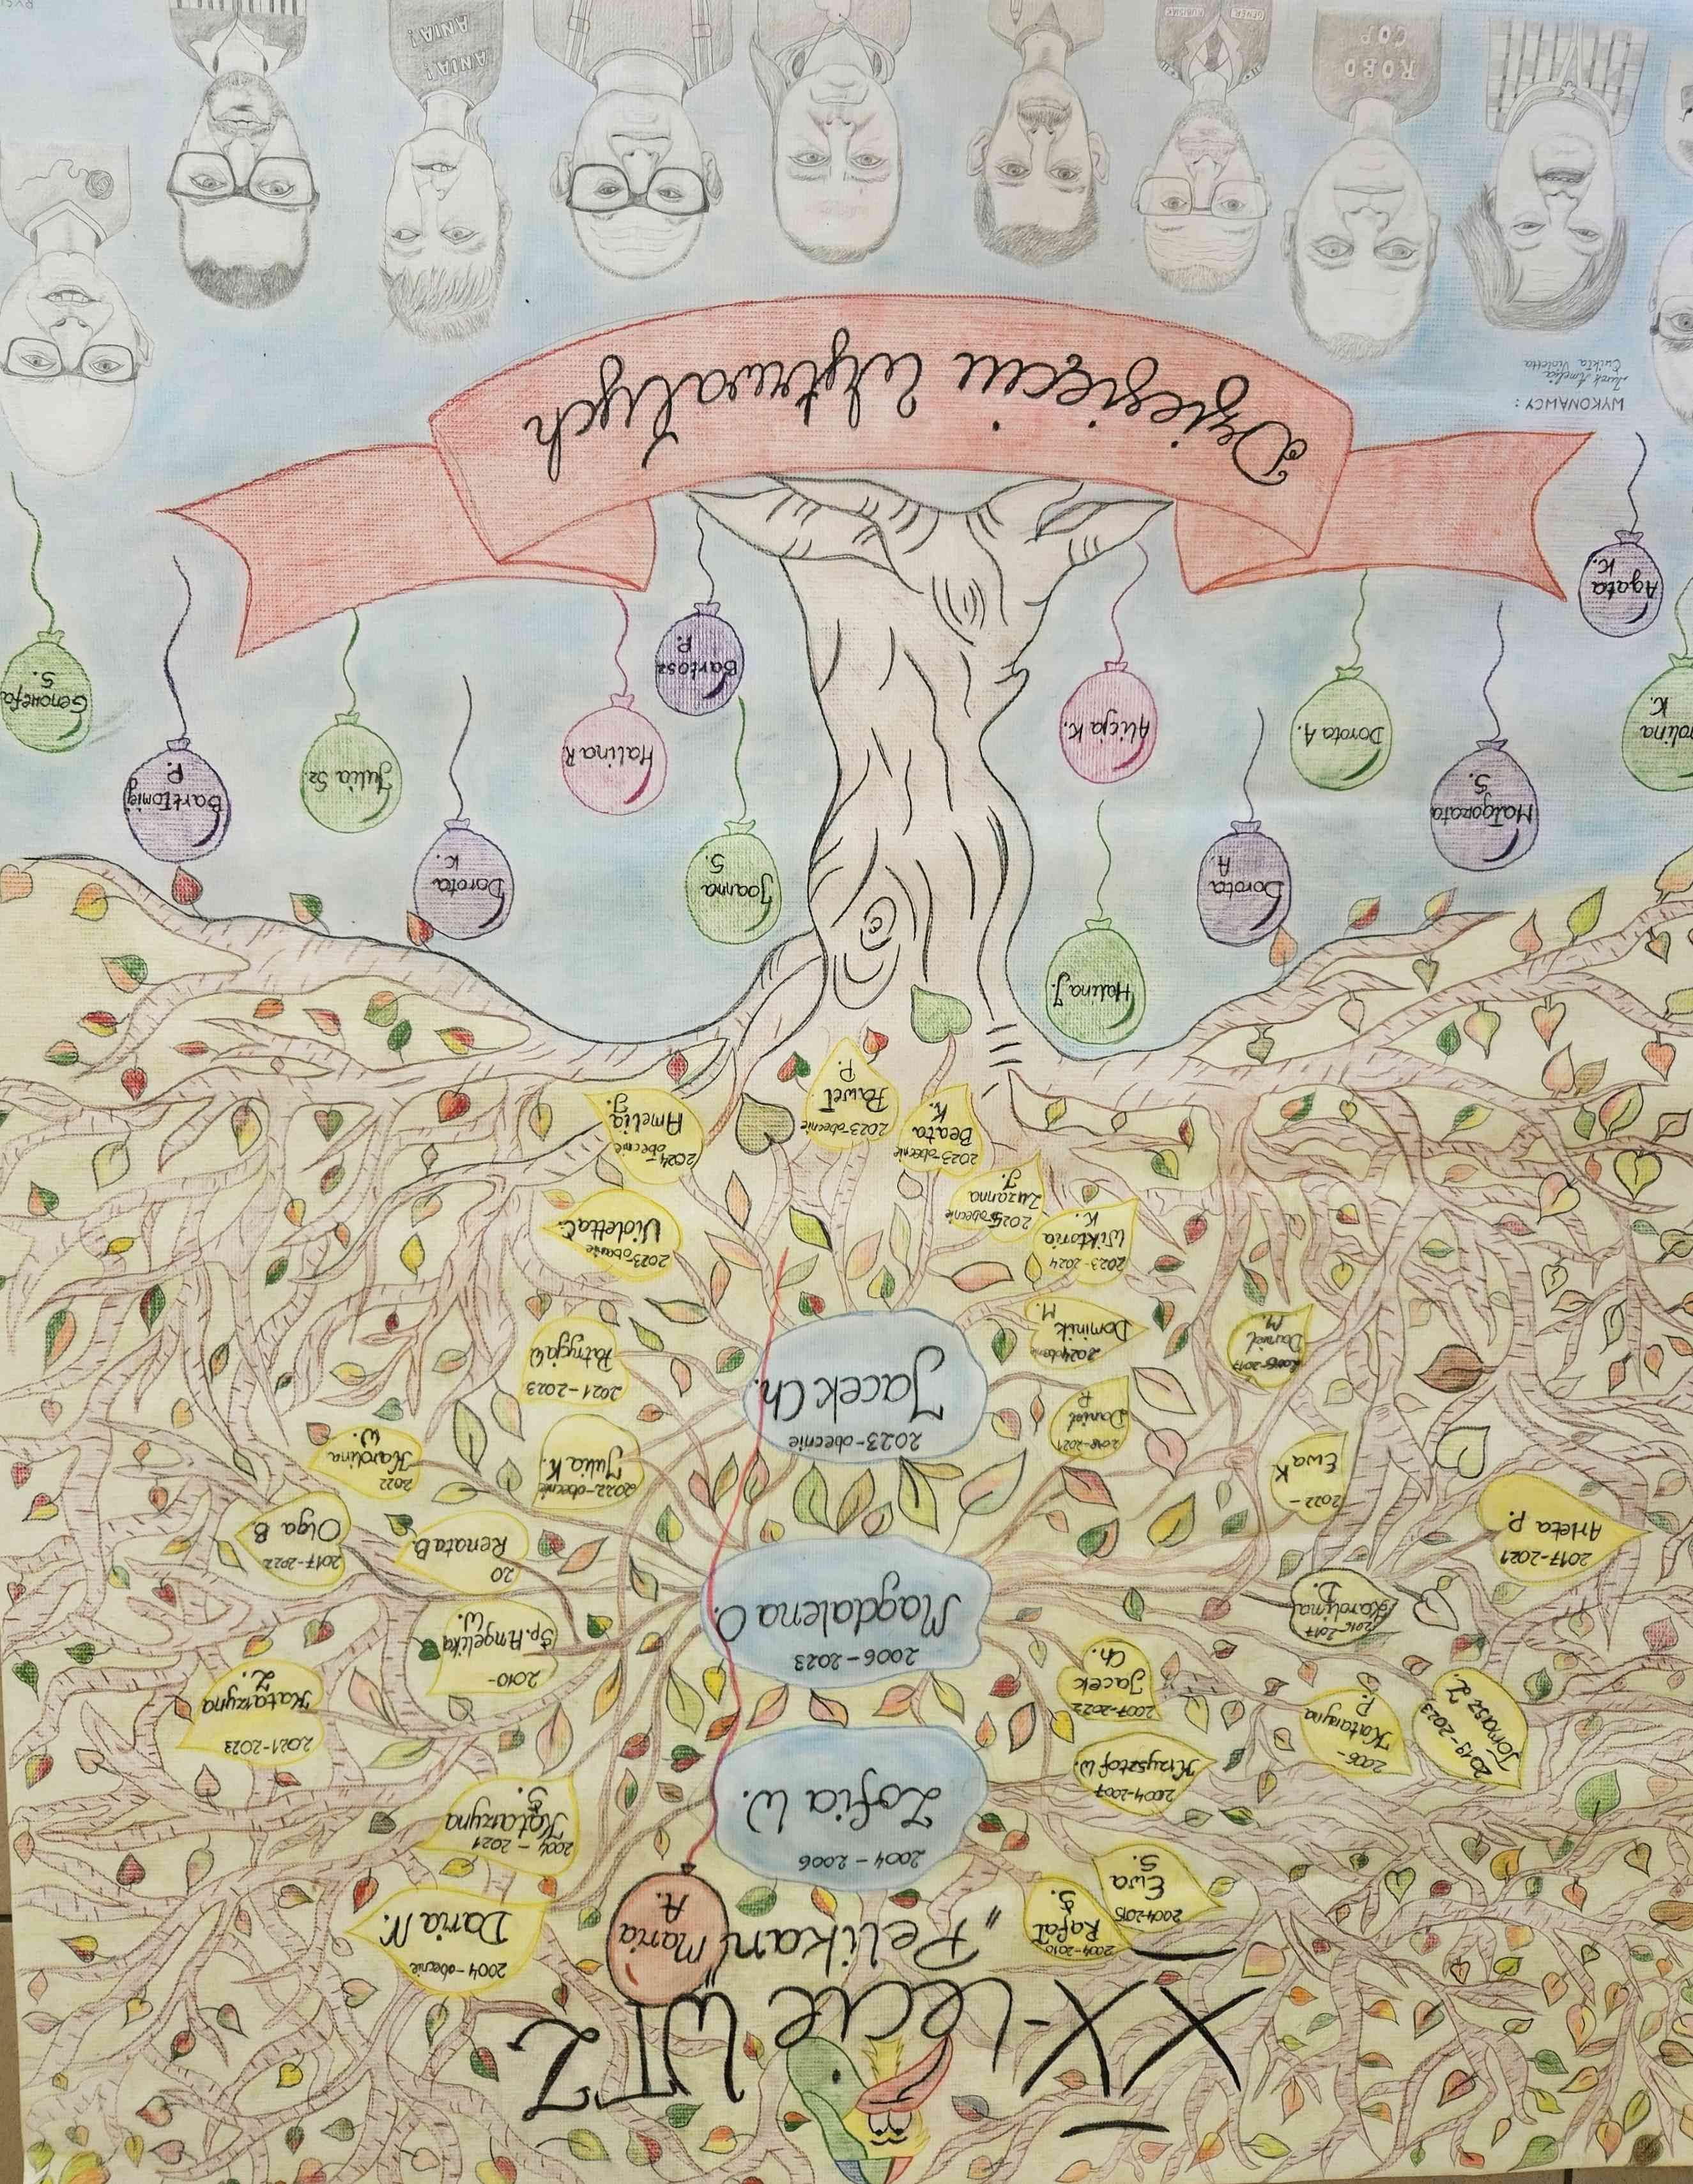 XX-lecie WTZ
"Pelikan"
Maria
A.
2004-2010
Rafał
S.
2004-2015
Ewa
S.
2004-obecnie
Daria N.
2004-2006
Zofia W.
2004-2021
Katarzyna
S.
2004-2007
Krzysztof W.
2019-2023
Tomasz Z.
2006-
Katarzyna
P.
2007-2022
Jacek
Ch.
2006-2023
Magdalena O.
2021-2023
Katarzyna
Z.
2010-
Śp. Angelika
W.
2016-2017
Karolina
D.
2017-2021
Arleta P.
20
Renata B.
2017-2022
Olga B.
2022-
Ewa K.
2022-obecnie
Julia K.
2022
Karolina
W.
2023-obecnie
Jacek Ch.
2018-2021
Daniel
P.
2021-2023
Patrycja W.
Daniel
M.
2024obecnie
Dominik
M.
2023-2024
Wiktoria
K.
2023-obecnie
Violetta C.
2025-obecnie
Zuzanna
J.
2023-obecnie
Beata
K.
2023-obecnie
Paweł
P.
2024-
obecnie
Amelia
J.
Halina J.
Dorota
A.
Joanna
S.
Dorota
K.
Małgorzata
S.
Bartłomiej
P.
Dorota A.
Alicja K.
Halina R.
Julia Sz.
rolina
K.
Bartosz
P.
Genowefa
S.
Agata
K.
Dziesięciu Wytrwałych
WYKONAWCY:
Jurek Amelia
Ćwikła Violetta
ROBO
COP
GENER.
KUBUSIAK
ANIA!
ANIA!